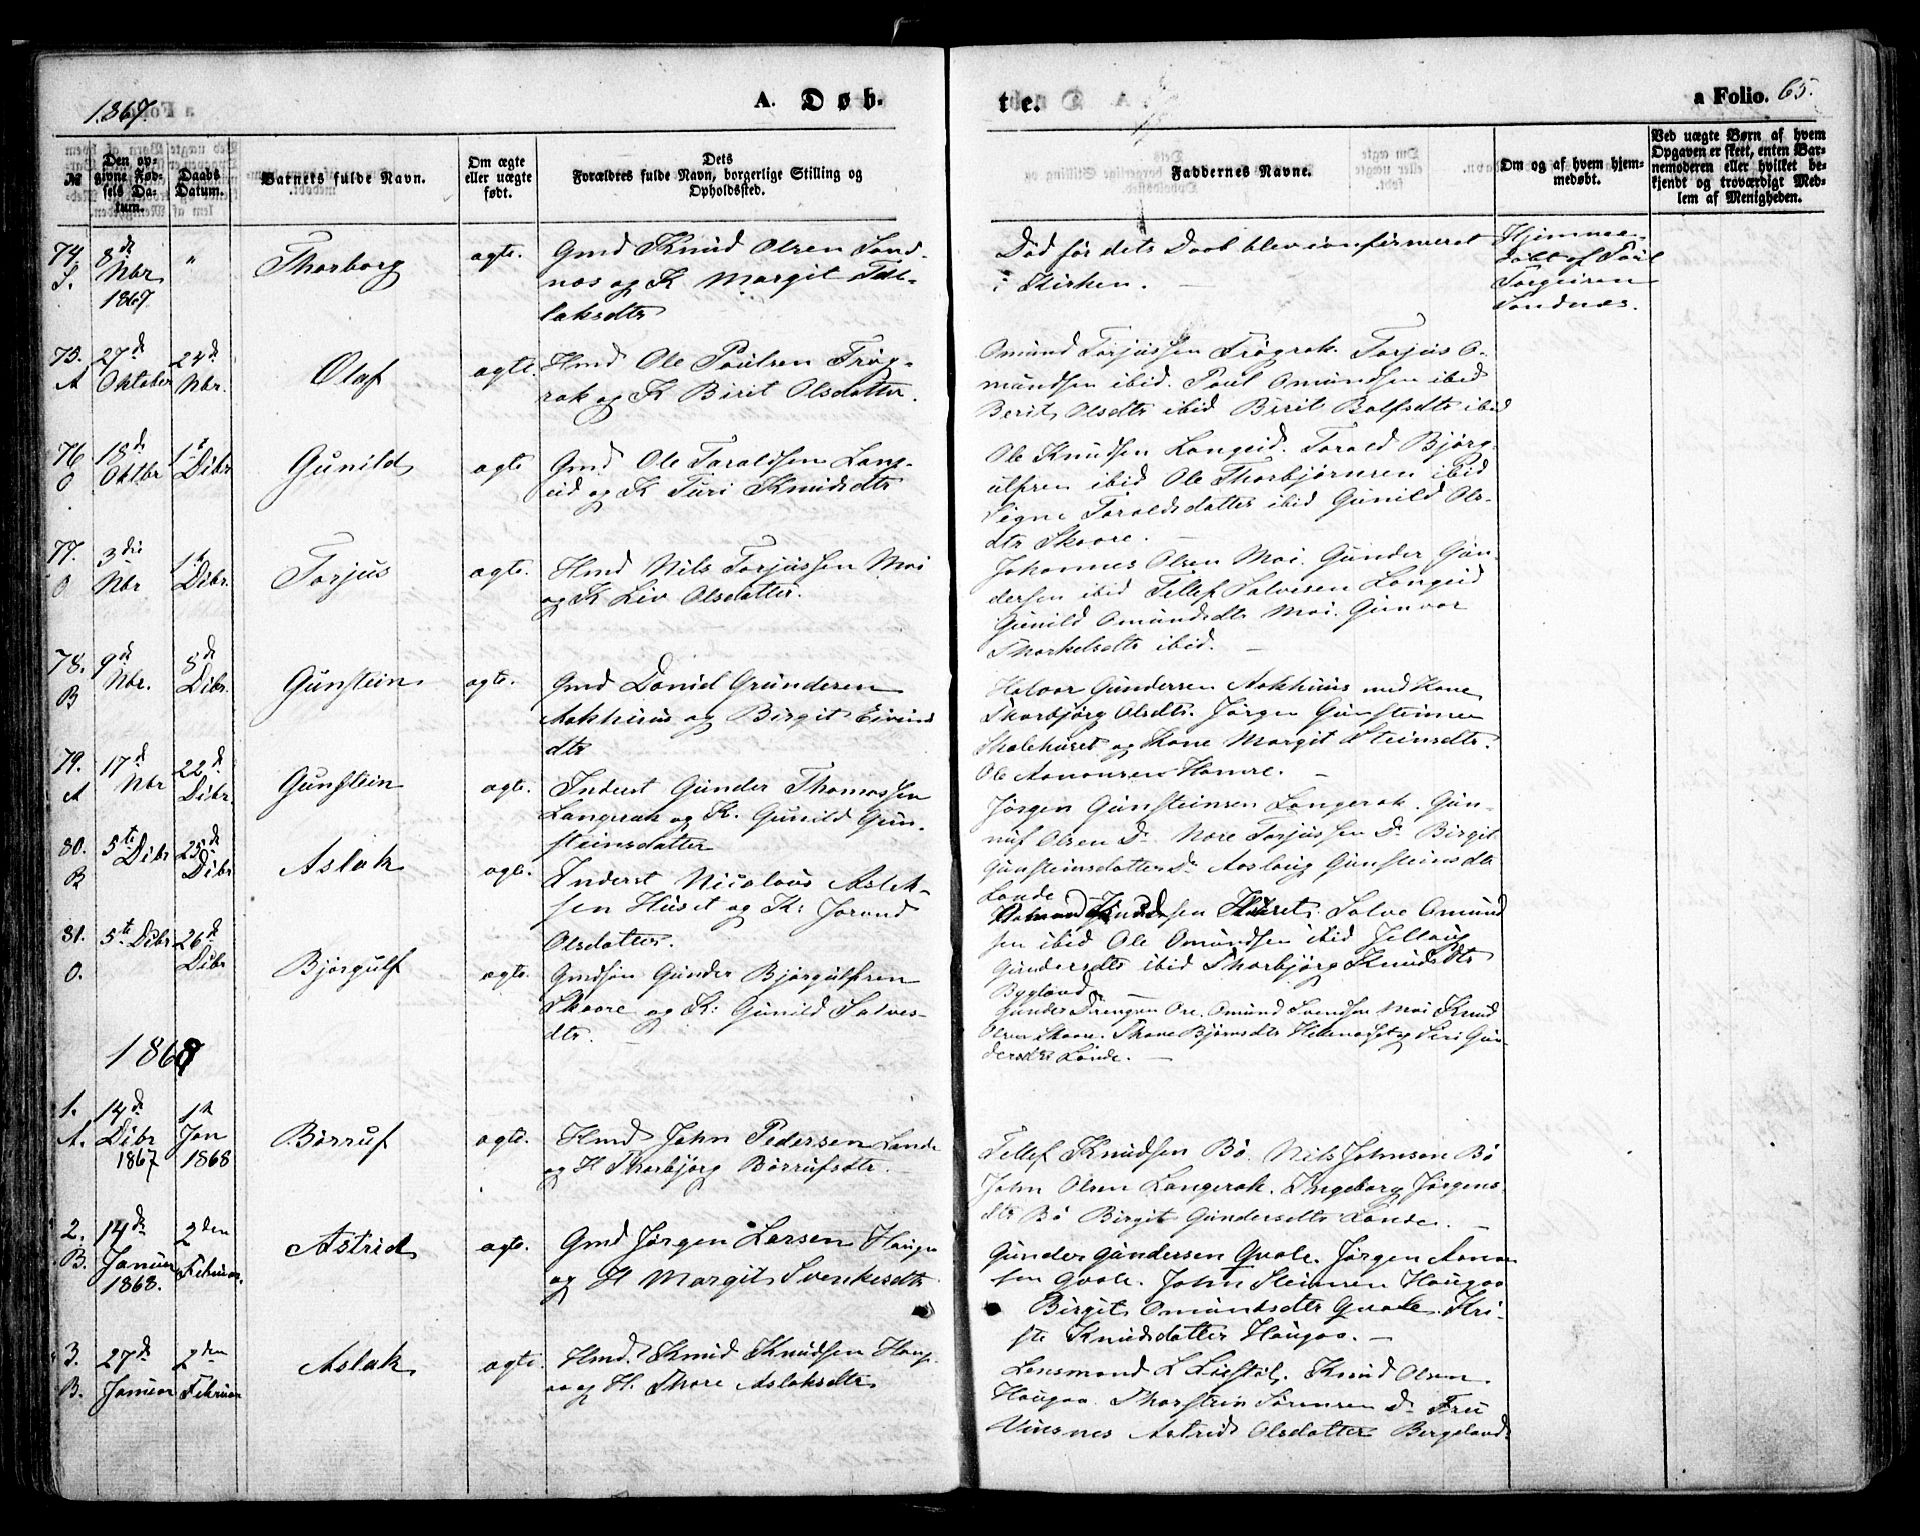 1867.
A. Døb-
te.
a Folio. 65.
№
Den op-
givne Fød-
sels Da-
tum.
Daabs
Datum.
Barnets fulde Navn.
Om ægte
eller uægte
født.
Dets
Forældres fulde Navn, borgerlige Stilling og
Opholdssted.
Faddernes Navne.
Om og af hvem hjem-
medøbt.
Ved uægte Børn af hvem
Opgaven er skeet, enten Bar-
nemoderen eller hvilket be-
kjendt og troværdigt Med-
lem af Menigheden.
74. 8de "
S. Nbr
1867.
Thorborg
agte.
Gmd Knud Olsen Sand-
nes og K Margit
laksdtr
Død før dets Daab blev confirmeret
i Kirken.
Hjemme-
døbt af
Torgeirsen
Sandnes.
75. 27de 24de
A Oktober Nbr.
Olaf
agte.
Hmd Ole Paulsen Frøg-
rak og K Birit Olsdatter.
Omund Torjussen Frøgrak. Torjus O-
mundsen ibid. Paul Omundsen ibid
Berit Olsdtr ibid Birit Rolfsdtr ibid
76. 18de 1ste
O Oktbr Dcbr
Gunild
agte
Gmd Ole Taraldsen Lang-
eid og K Turi Knudsdtr
Ole Knudsen Langeid. Tarald Bjørg-
ulfsen ibid Ole Thorbjørnsen ibid
Signe Taraldsdatter ibid Gunild Ols-
dtr Skaare.
77. 3die 1ste
O Nbr Dcbr.
Torjus
agte.
Hmd Nils Torjussen Moi
og K Liv Olsdatter.
Johannes Olsen Moi. Gunder Gun-
dersen ibid Tellef Salvesen Langeid
Gunild Omundsdtr Moi. Gunvor
Thorkelsdtr ibid.
78. 9de 8de
B Nbr. Dcbr.
Gunstein
agte.
Gmd Daniel Gundersen
Aakhuus og Birgit Eivinds
dtr
Halvor Gundersen Aakhuus med Kone
Thorbjørg Olsdtr. Jørgen Gunsteinsen
Skolehuset og Kone Margit Steinsdtr.
Ole Aanonsen Hamre.
79. 17de 22de
A Nbr Dcbr.
Gunstein
agte.
Inderst Gunder Thomassen
Langerak og K. Gunild Gun-
steinsdatter
Jørgen Gunsteinsen Langerak. Gun-
nuf Olsen Do Nore Torjussen Do Birgit
Gunsteinsdatter Do Aaslaug Gunsteinsdtr
Lande
80. 5te Dcbr 25de
B Dcbr
Aslak
agte.
Inderst Nicolaus Aslak-
sen Huset og K: Jorand
Olsdatter.
Knudsen Huset. Salve Omund
sen ibid Ole Omundsen ibid Jellaug
Gundersdtr ibid Thorbjørg Knudsdtr
Bygland
81. 5te Dcbr 26de
O. Dcbr
Bjørgulf
agte.
Gmdsøn Gunder Bjørgulfsen
Skaare og K: Gunild Salves-
dtr.
Gunder Ore. Omund Svendsen Moi Knud
Olsen Skaare. Thone Bjørnsdtr og Siri Gun-
dersdtr Lande.
1868
1. 14de 1ste
A. Dcbr Jan
1867 1868
Børruf
agte.
Hmd John Pedersen Lande
og H Thorbjørg Børrufsdtr.
Tellef Knudsen Bø. Nils Johnsen Bø
John Olsen Langerak. Ingeborg Jørgens-
dtr Bø Birgit Gundersdtr Lande.
2. 14de 2den
B. Januar Februar.
1868.
Astrid
agte.
Gmd Jørgen Larsen Haugaa
og H Margit Svenkesdtr
Gunder Gundersen Qvale. Jørgen Aanon
sen Qvale. John Steinsen Haugaa
Birgit Omundsdtr Qvale. Kri-
ste Knudsdatter Haugaa.
3. 27de 2den
B. Januar Februar
Aslak
agte.
Hmd. Knud Knudsen Haug-
aa og H. Thore Aslaksdtr
Lensmand L Liestøl. Knud Olsen
Haugaa. Thorstein Sørensen Do Fru
Viisnes Astrid Olsdatter Bergeland.